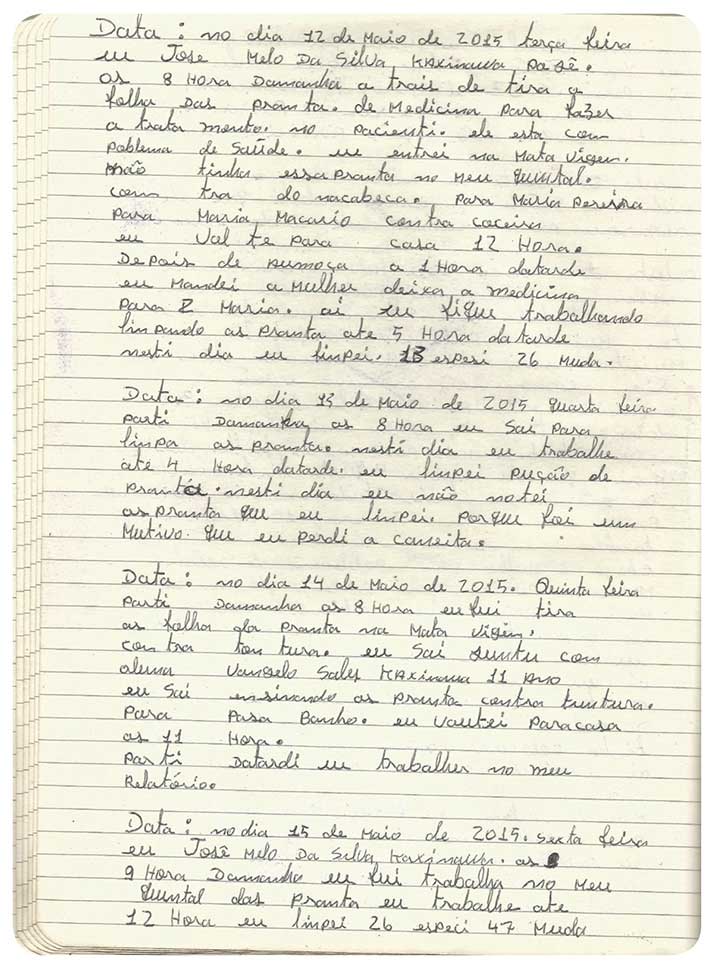 Data: no dia 12 de Maio de 2015 terça feira
eu Jose Melo Da Silva Kaxinawa pasê.
as 8 Hora Damanha a trais de tira a
folha das pranta. de Medicina para fazer
a trata mento. no pacienti. ele esta com
poblema de Saúde. eu entrei na Mata Vigen.
não tinha essa pranta no Meu quintal.
com tra do nacabeca. para Maria Pereira
para Maria Macario contra coceira
eu Val te para casa 12 Hora.
Depois de aumoça a 1 Hora datarde
eu Mandei a Mulher deixa a medicina
para 2 Maria. ai eu fique trabalhando
linpando as pranta ate 5 Hora datarde
nesti dia eu linpei. 13 espesi 26 Muda.
Data: no dia 13 de Maio de 2015 quarta feira
parti Damanha as 8 Hora eu Sai para
linpa as pranta. nesti dia eu trabalhe
ate 4 Hora datarde. eu linpei pução de
pranta. nesti dia eu não notei
as pranta que eu linpei. porque foi um
Mutivo. que eu perdi a caneita.
Data: no dia 14 de Maio de 2015. Quinta feira
parti Damanha as 8 Hora eu fui tira
as folha da pranta na Mata Vigen.
con tra ton tura. eu Sai juntu com
aluma Vangelo Sales Kaxinawa 11 Ano
eu Sai ensinando as pranta contra tuntura.
para pasa Banho. eu vautei paracasa
as 11 Hora.
parti Datardi eu trabalher no meu
Relatório.
Data: no dia 15 de Maio de 2015. sexta feira
eu José Melo Da Silva Kaxinawa. as
9 Hora Damanha eu fui trabalha no Meu
quintal das pranta eu trabalhe ate
12 Hora eu linpei 26 especi 47 Muda